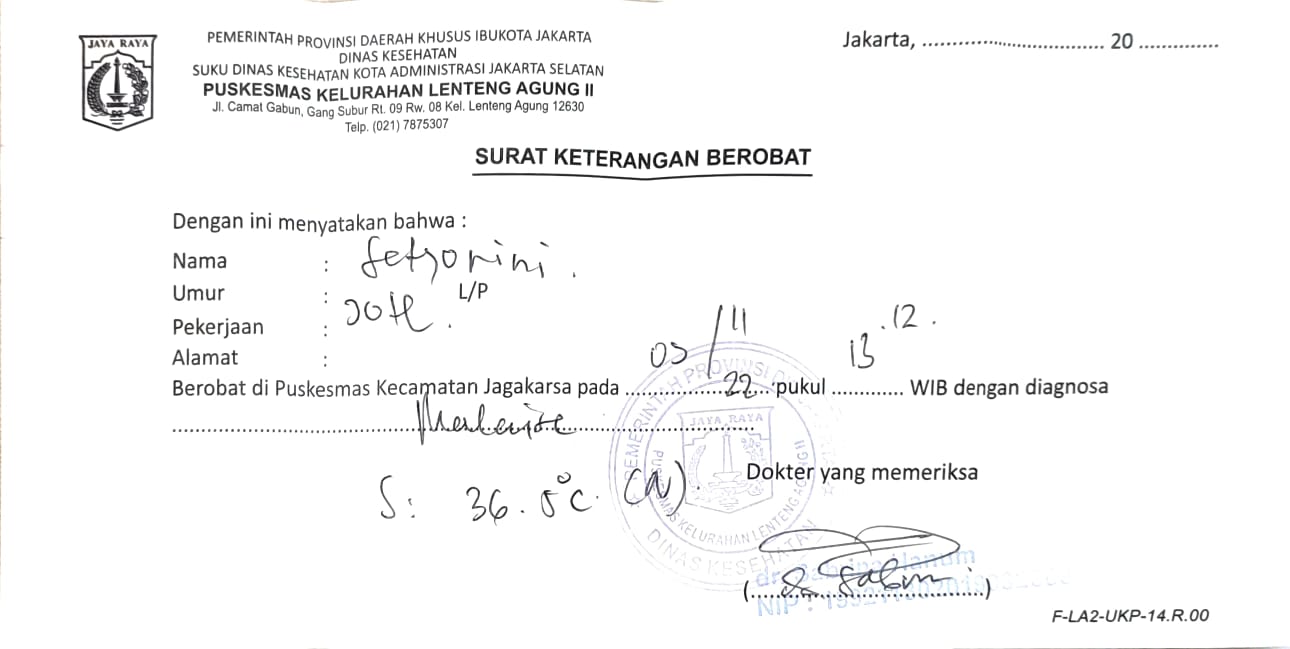 JAYA RAYA
PEMERINTAH PROVINSI DAERAH KHUSUS IBUKOTA JAKARTA
DINAS KESEHATAN
SUKU DINAS KESEHATAN KOTA ADMINISTRASI JAKARTA SELATAN
PUSKESMAS KELURAHAN LENTENG AGUNG II
Jl. Camat Gabun, Gang Subur Rt. 09 Rw. 08 Kel. Lenteng Agung 12630
Telp. (021) 7875307
Jakarta, ................................. 20 ..............
SURAT KETERANGAN BEROBAT
Dengan ini menyatakan bahwa :
Nama : Setyorini.
Umur : L/P
Pekerjaan :
Alamat :
Berobat di Puskesmas Kecamatan Jagakarsa pada 03/11 22 pukul 13.12. WIB dengan diagnosa
S: 36.5°C. (N).
Dokter yang memeriksa
PEMERINTAH PROVINSI
JAYA RAYA
PUSKESMAS KELURAHAN LENTENG AGUNG II
DINAS KESEHATAN
dr. Hanum
NIP :
F-LA2-UKP-14.R.00